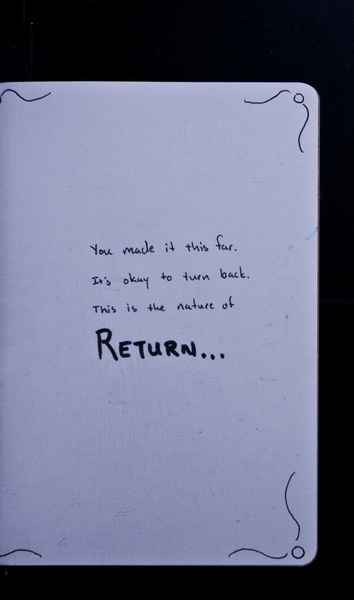 You made it this far.
It's okay to turn back.
This is the nature of
RETURN...